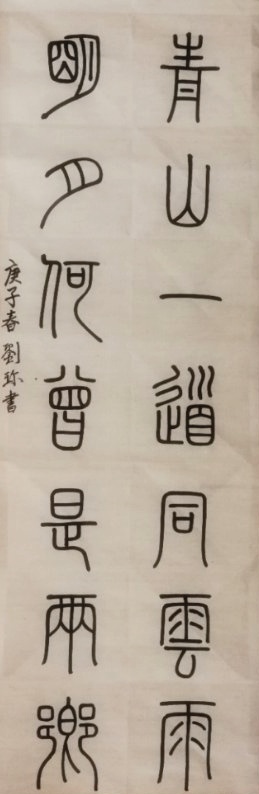 青山一道同雲雨
明月何曾是兩鄉
庚子春劉珎書